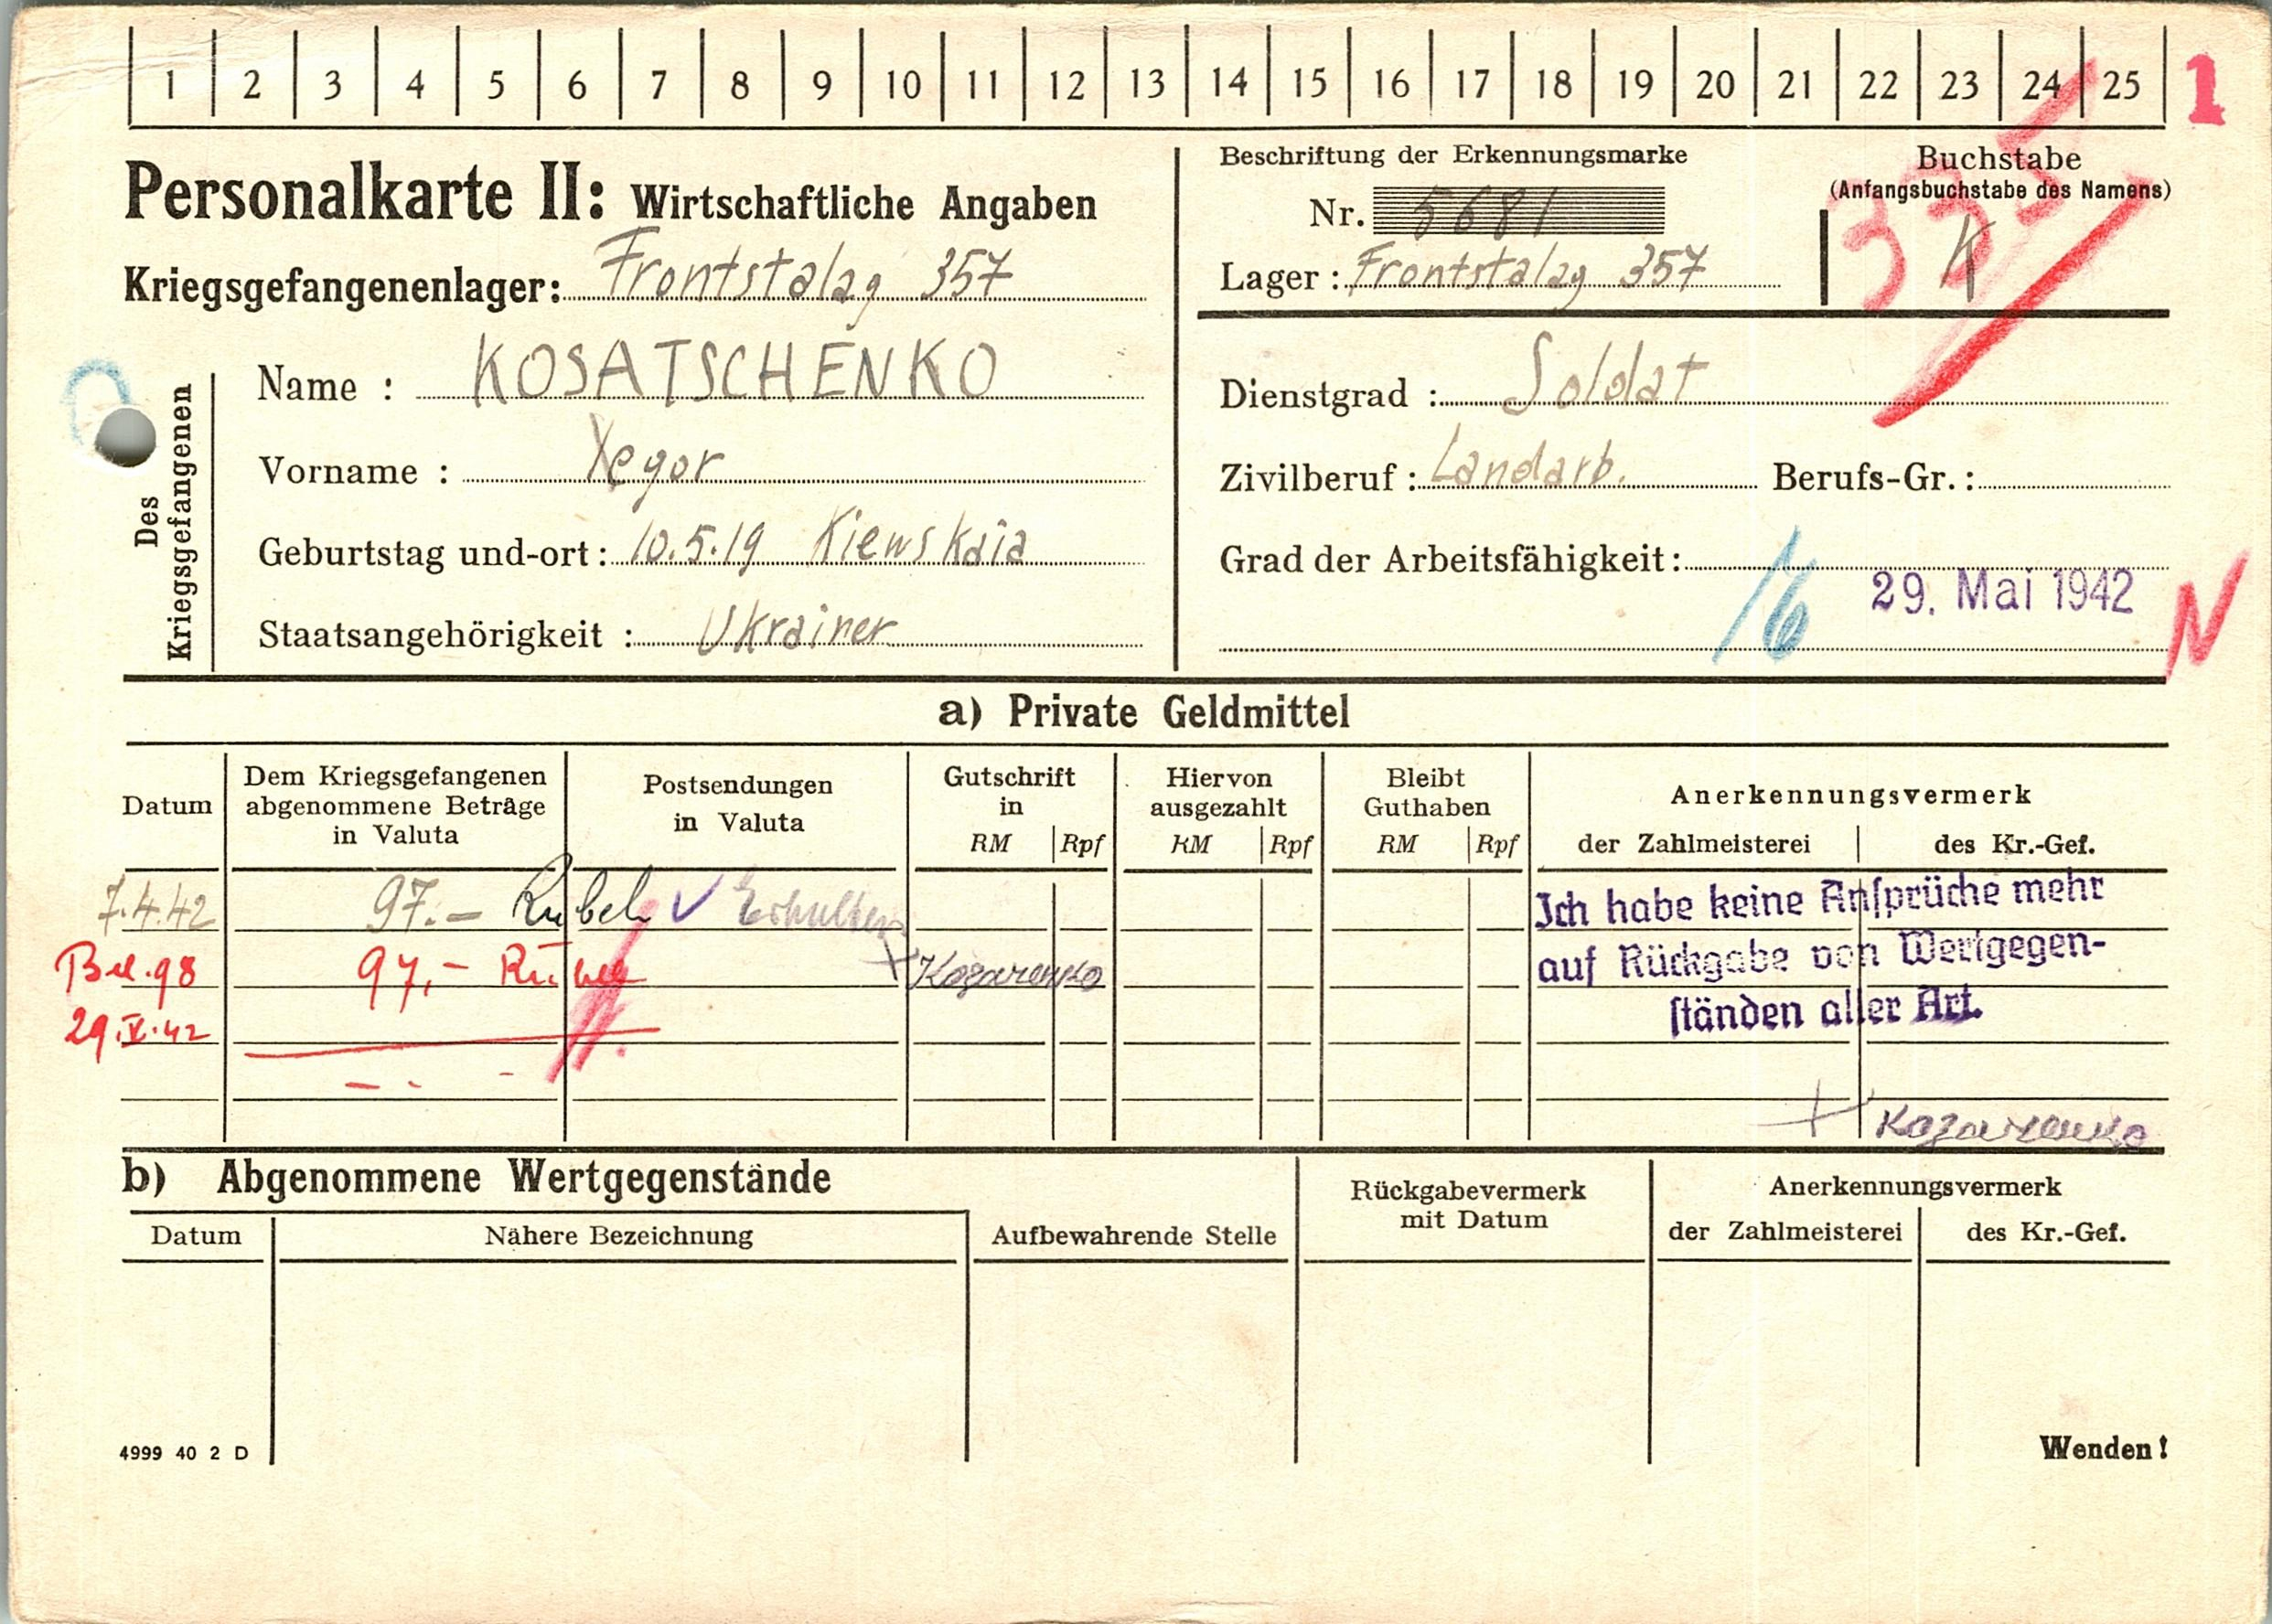 1 2 3 4 5 6 7 8 9 10 11 12 13 14 15 16 17 18 19 20 21 22 23 24 25 1
Personalkarte II: Wirtschaftliche Angaben
Kriegsgefangenenlager: Frontstalag 357
Beschriftung der Erkennungsmarke
Nr. 5681
Lager: Frontstalag 357
Buchstabe
(Anfangsbuchstabe des Namens)
K
335
Des Kriegsgefangenen
Name : KOSATSCHENKO
Vorname : Yegor
Geburtstag und-ort: 10.5.19 Kiewskaia
Staatsangehörigkeit : Ukrainer
Dienstgrad : Soldat
Zivilberuf : Landarb. Berufs-Gr.:
Grad der Arbeitsfähigkeit:
29. Mai 1942
N
a) Private Geldmittel
Datum
Dem Kriegsgefangenen
abgenommene Beträge
in Valuta
Postsendungen
in Valuta
Gutschrift
in
RM Rpf
Hiervon
ausgezahlt
RM Rpf
Bleibt
Guthaben
RM Rpf
Anerkennungsvermerk
der Zahlmeisterei des Kr.-Gef.
7.4.42 97.- Rubel Erhalten
Bel. 98 97,- Rubel
29.V.42
Ich habe keine Ansprüche mehr
auf Rückgabe von Wertgegen-
ständen aller Art.
b) Abgenommene Wertgegenstände
Datum Nähere Bezeichnung Aufbewahrende Stelle
Rückgabevermerk
mit Datum
Anerkennungsvermerk
der Zahlmeisterei des Kr.-Gef.
4999 40 2 D
Wenden!